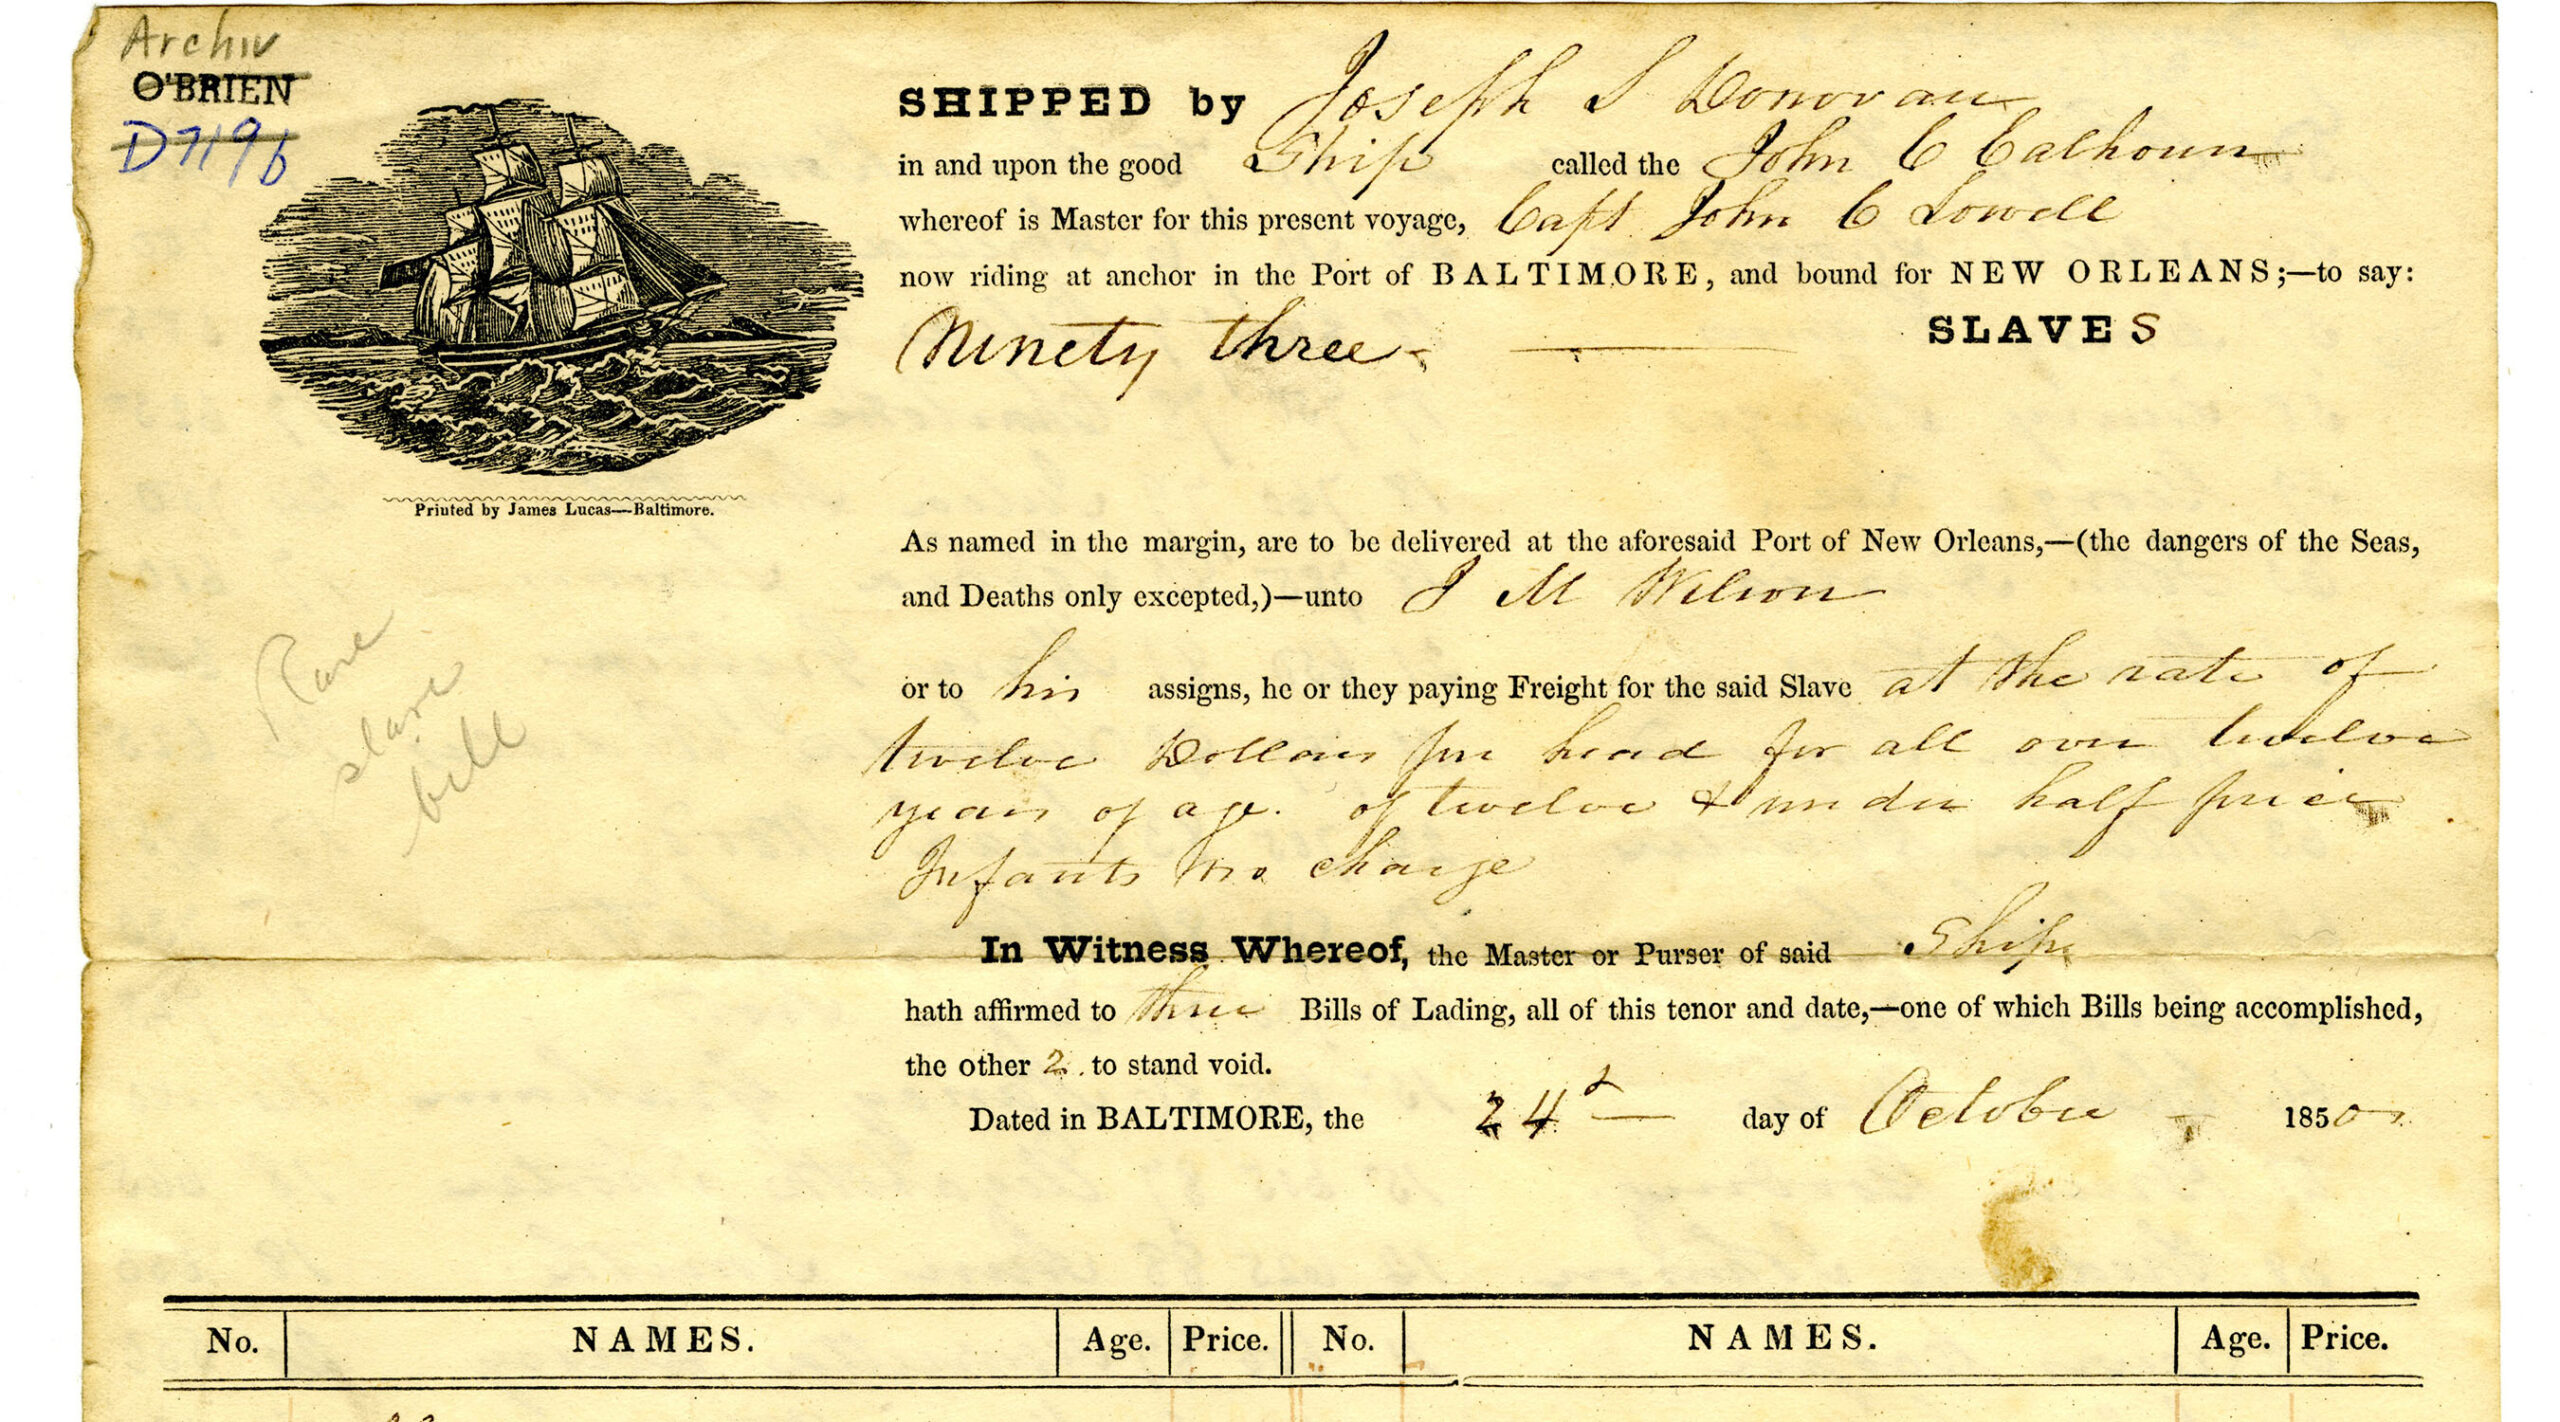 Archiv
O'BRIEN
D719b
SHIPPED by Joseph S Donovan
in and upon the good Ship called the John C Calhoun
whereof is Master for this present voyage, Capt John C Lowell
now riding at anchor in the Port of BALTIMORE, and bound for NEW ORLEANS;—to say:
Ninety three SLAVES
Printed by James Lucas—Baltimore.
As named in the margin, are to be delivered at the aforesaid Port of New Orleans,—(the dangers of the Seas,
and Deaths only excepted,)—unto J M Wilson
Rare
slave
bill
or to his assigns, he or they paying Freight for the said Slave at the rate of
twelve Dollars per head for all over twelve
years of age. of twelve & under half price
Infants no charge
In Witness Whereof, the Master or Purser of said Ship
hath affirmed to three Bills of Lading, all of this tenor and date,—one of which Bills being accomplished,
the other 2. to stand void.
Dated in BALTIMORE, the 24 day of October 1850
No. NAMES. Age. Price. No. NAMES. Age. Price.